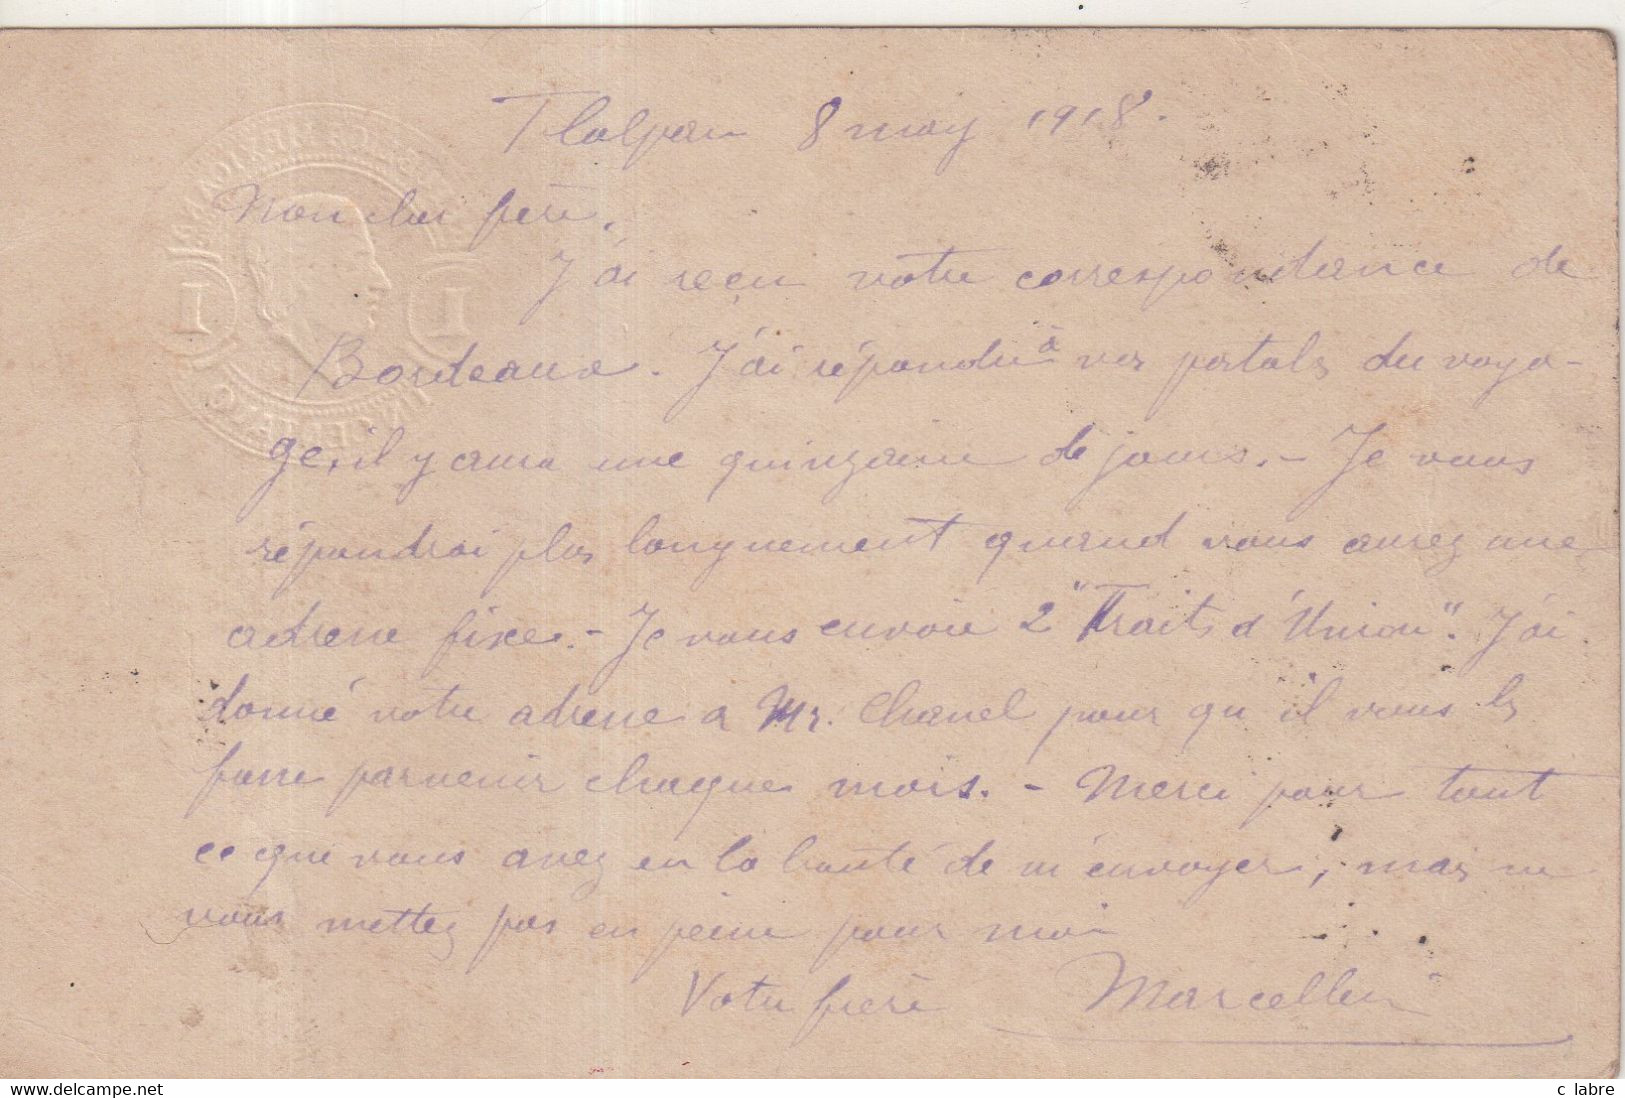 Tlalpan 8 may 1918.
Mon cher frère,
J'ai reçu votre correspondance de
Bordeaux. J'ai répondu à vos postals du voya-
ge, il y aura une quinzaine de jours. - Je vous
répondrai plus longuement quand vous aurez une
adresse fixe. - Je vous envoie 2 "Traits d'Union". J'ai
donné votre adresse a Mr. Chanel pour qu'il vous les
fasse parvenir chaque mois. - Merci pour tout
ce que vous avez eu la bonté de m'envoyer, mais ne
vous mettez pas en peine pour moi
Votre frère Marcellin
www.delcampe.net
c labre